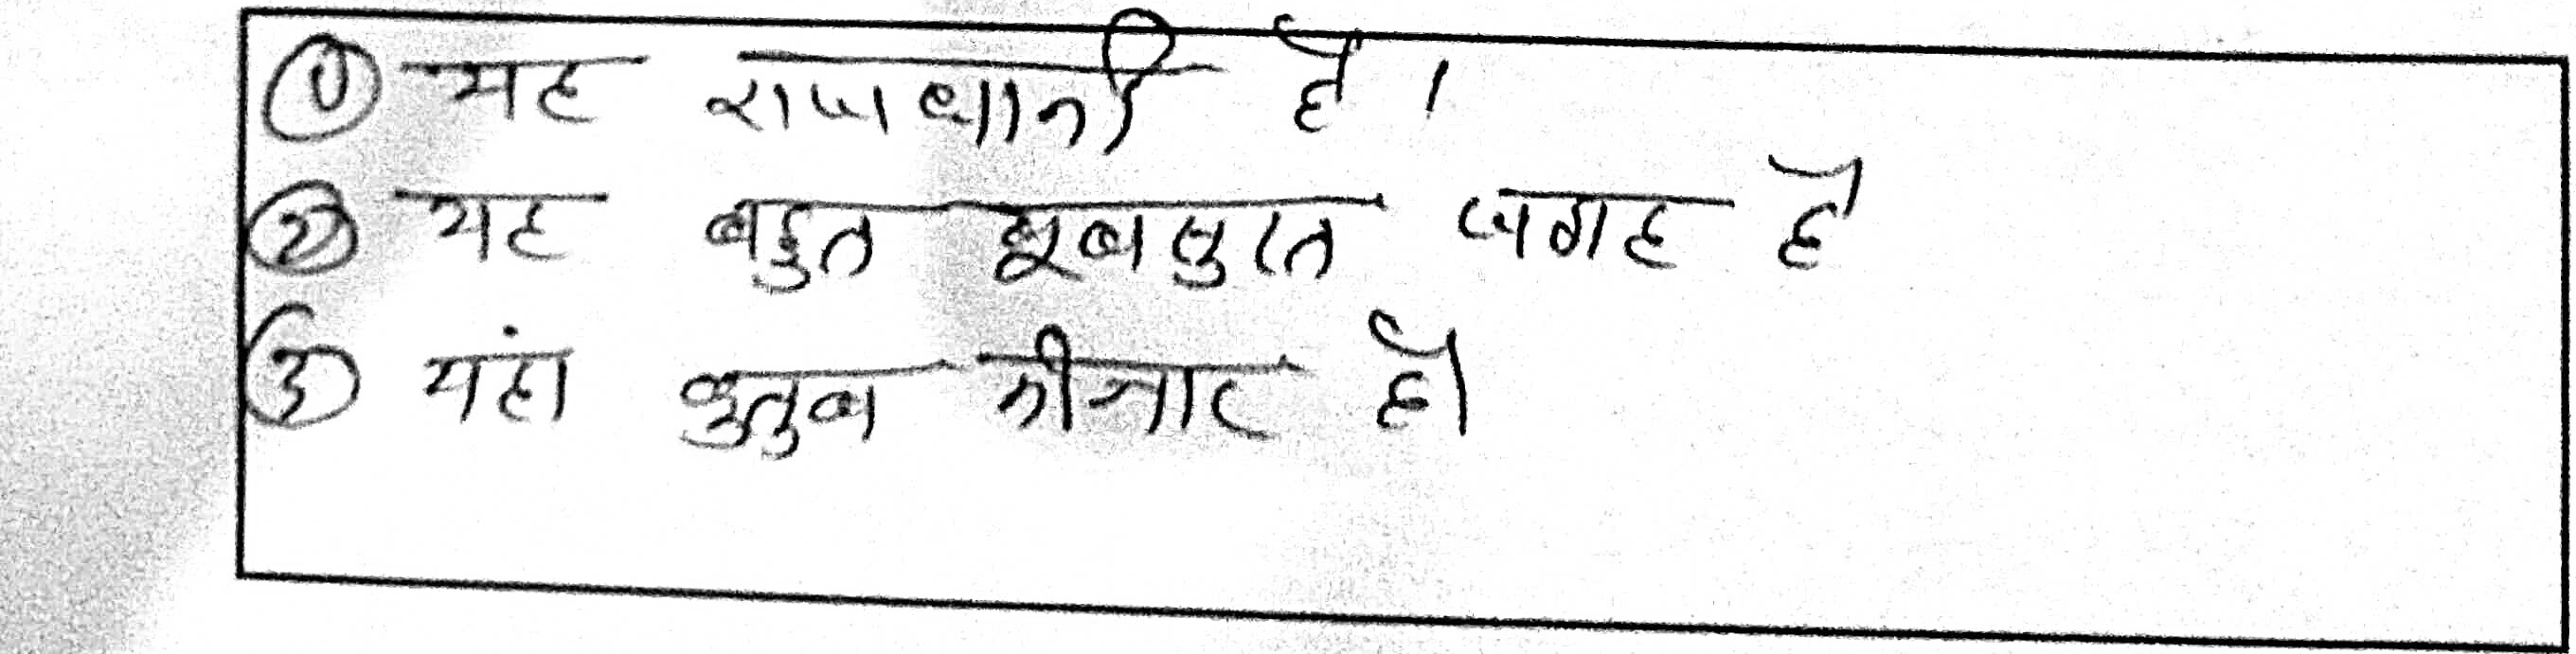 ① यह राजधानी है ।
② यह बहुत खूबसुरत जगह है
③ यंहा कुतुब मीनार है।